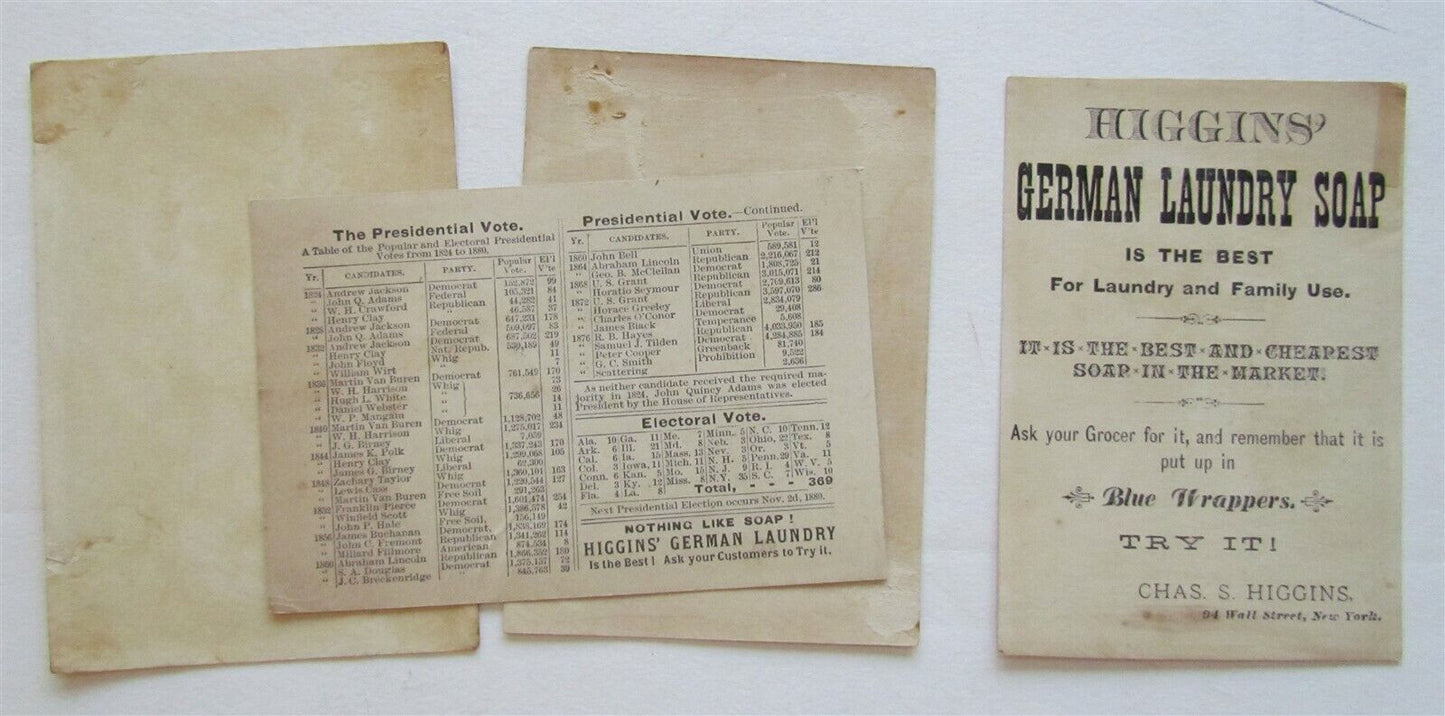 The Presidential Vote.
A Table of the Popular and Electoral Presidential
Votes from 1824 to 1880.
Yr. CANDIDATES. PARTY. Popular Vote. El'l V'te
1824 Andrew Jackson Democrat 152,872 99
" John Q. Adams Federal 105,321 84
" W. H. Crawford Republican 44,282 41
" Henry Clay " 46,587 37
1828 Andrew Jackson Democrat 647,231 178
" John Q. Adams Federal 509,097 83
1832 Andrew Jackson Democrat 687,502 219
" Henry Clay Nat. Repub. 530,189 49
" John Floyd Whig 11
" William Wirt 7
1836 Martin Van Buren Democrat 761,549 170
" W. H. Harrison Whig 73
" Hugh L. White " 26
" Daniel Webster " 736,656 14
" W. P. Mangain " 11
1840 Martin Van Buren Democrat 1,128,702 48
" W. H. Harrison Whig 1,275,017 234
" J. G. Birney Liberal 7,059
1844 James K. Polk Democrat 1,337,243 170
" Henry Clay Whig 1,299,068 105
" James G. Birney Liberal 62,300
1848 Zachary Taylor Whig 1,360,101 163
" Lewis Cass Democrat 1,220,544 127
" Martin Van Buren Free Soil 291,263
1852 Franklin Pierce Democrat 1,601,474 254
" Winfield Scott Whig 1,386,578 42
" John P. Hale Free Soil, 156,149
1856 James Buchanan Democrat, 1,838,169 174
" John C. Fremont Republican 1,341,262 114
" Millard Fillmore American 874,534 8
1860 Abraham Lincoln Republican 1,866,352 180
" S. A. Douglas Democrat 1,375,157 72
" J. C. Breckenridge " 845,763 39
Presidential Vote.—Continued.
Yr. CANDIDATES. PARTY. Popular Vote. El'l V'te
1860 John Bell Union 589,581 12
1864 Abraham Lincoln Republican 2,216,067 212
" Geo. B. McClellan Democrat 1,808,725 21
1868 U. S. Grant Republican 3,015,071 214
" Horatio Seymour Democrat 2,709,613 80
1872 U. S. Grant Republican 3,597,070 286
" Horace Greeley Liberal 2,834,079
" Charles O'Conor Democrat 29,408
" James Black Temperance 5,608
1876 R. B. Hayes Republican 4,033,950 185
" Samuel J. Tilden Democrat 4,284,885 184
" Peter Cooper Greenback 81,740
" G. C. Smith Prohibition 9,522
" Scattering 2,636
As neither candidate received the required ma-
jority in 1824, John Quincy Adams was elected
President by the House of Representatives.
Electoral Vote.
Ala. 10 Ga. 11 Me. 7 Minn. 5 N. C. 10 Tenn. 12
Ark. 6 Ill. 21 Md. 8 Neb. 3 Ohio, 22 Tex. 8
Cal. 6 Ia. 15 Mass. 13 Nev. 3 Or. 3 Vt. 5
Col. 3 Iowa, 11 Mich. 11 N. H. 5 Penn. 29 Va. 11
Conn. 6 Kan. 5 Mo. 15 N. J. 9 R. I. 4 W. V. 5
Del. 3 Ky. 12 Miss. 8 N.Y. 35 S. C. 7 Wis. 10
Fla. 4 La. 8 Total, - - - 369
Next Presidential Election occurs Nov. 2d, 1880.
NOTHING LIKE SOAP!
HIGGINS' GERMAN LAUNDRY
Is the Best! Ask your Customers to Try it.
HIGGINS'
GERMAN LAUNDRY SOAP
IS THE BEST
For Laundry and Family Use.
IT×IS×THE×BEST×AND×CHEAPEST
SOAP×IN×THE×MARKET.
Ask your Grocer for it, and remember that it is
put up in
Blue Wrappers.
TRY IT!
CHAS. S. HIGGINS,
94 Wall Street, New York.